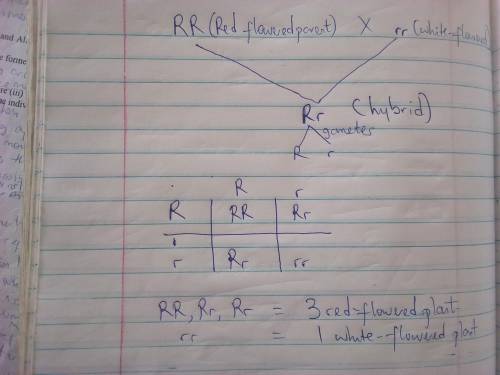 RR (Red-flowered parent) X rr (white-flowered
Rr (hybrid)
gametes
R r
R r
R RR Rr
r Rr rr
RR, Rr, Rr = 3 red-flowered plant
rr = 1 white-flowered plant